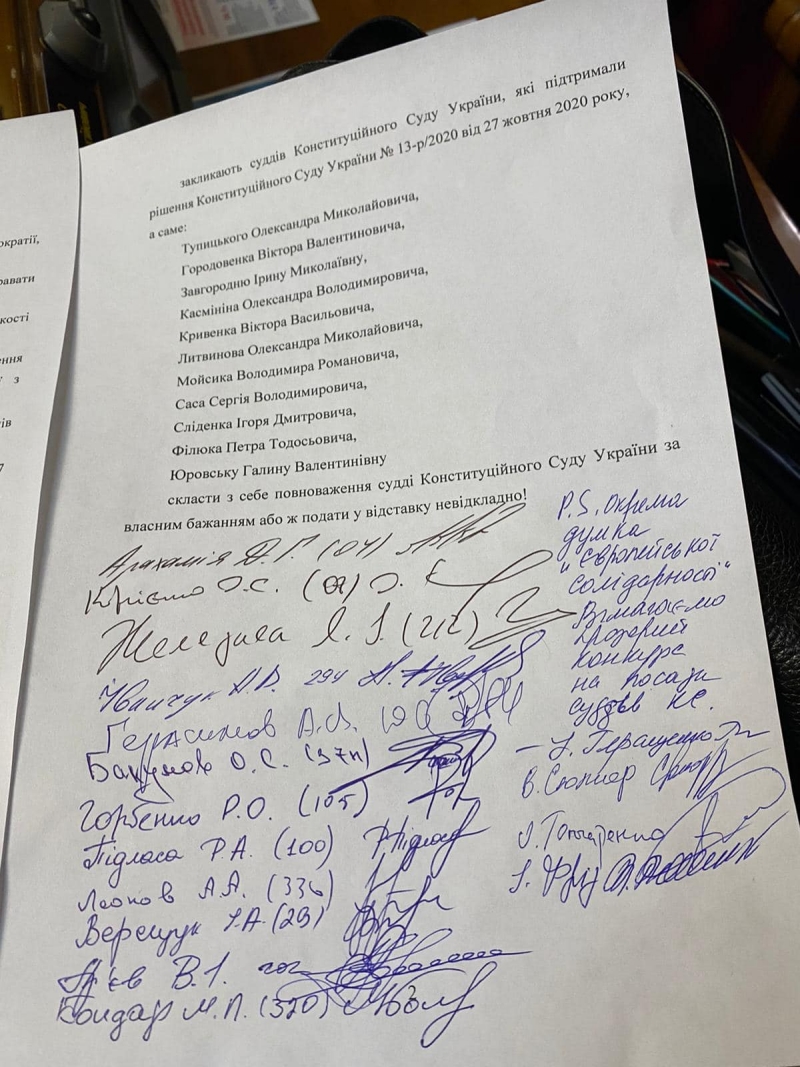 ократії,
равати
кості
ення
з
ів
закликають суддів Конституційного Суду України, які підтримали
рішення Конституційного Суду України № 13-р/2020 від 27 жовтня 2020 року,
а саме:
Тупицького Олександра Миколайовича,
Городовенка Віктора Валентиновича,
Завгородню Ірину Миколаївну,
Касмініна Олександра Володимировича,
Кривенка Віктора Васильовича,
Литвинова Олександра Миколайовича,
Мойсика Володимира Романовича,
Саса Сергія Володимировича,
Сліденка Ігоря Дмитровича,
Філюка Петра Тодосьовича,
Юровську Галину Валентинівну
скласти з себе повноваження судді Конституційного Суду України за
власним бажанням або ж подати у відставку невідкладно!
Арахамія Д. Г. (04)
Корієнко О.С.
Железняк Я. І. (212)
294
Герасимов А.В.
Бакумов О.С.
Горбенко Р.О. (105)
Підласа Р.А. (100) Підласа
Леонов
Верещук І.А. (29)
Ар'єв В.І.
Бондар М.П. (320)
P.S. Окрема
думка
"Європейської
солідарності"
Вимагаємо
прозорий
конкурс
на посади
суддів КС.
– І. Геращенко
В. Сюмар
О. Гончаренко